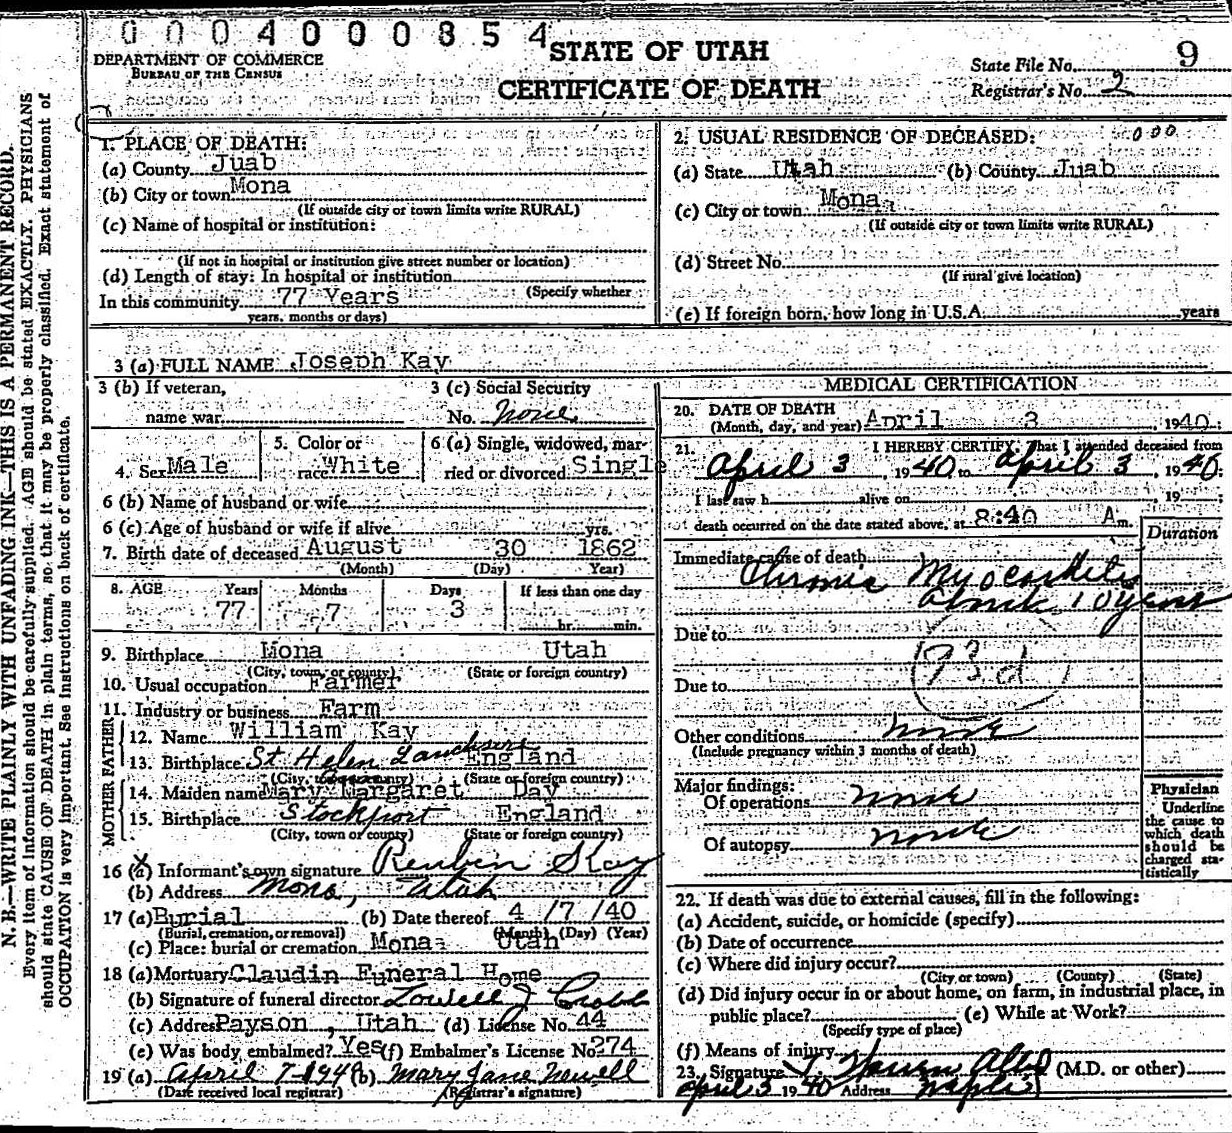 0004000854
STATE OF UTAH
CERTIFICATE OF DEATH
DEPARTMENT OF COMMERCE
BUREAU OF THE CENSUS
State File No. 9
Registrar's No. 2
N. B.—WRITE PLAINLY WITH UNFADING INK—THIS IS A PERMANENT RECORD.
Every item of information should be carefully supplied. AGE should be stated EXACTLY. PHYSICIANS
should state CAUSE OF DEATH in plain terms, so that it may be properly classified. Exact statement of
OCCUPATION is very important. See instructions on back of certificate.
1. PLACE OF DEATH:
(a) County Juab
(b) City or town Mona
(If outside city or town limits write RURAL)
(c) Name of hospital or institution:
(If not in hospital or institution give street number or location)
(d) Length of stay: In hospital or institution
(Specify whether
In this community 77 Years
years, months or days)
2. USUAL RESIDENCE OF DECEASED: 000
(a) State Utah (b) County Juab
(c) City or town Mona
(If outside city or town limits write RURAL)
(d) Street No.
(If rural give location)
(e) If foreign born, how long in U.S.A. years
3 (a) FULL NAME Joseph Kay
3 (b) If veteran, name war
3 (c) Social Security No. None
4. Sex Male
5. Color or race White
6 (a) Single, widowed, married or divorced Single
6 (b) Name of husband or wife
6 (c) Age of husband or wife if alive yrs.
7. Birth date of deceased August 30 1862
(Month) (Day) Year)
8. AGE Years Months Days If less than one day
77 7 3 hr. min.
9. Birthplace Mona Utah
(City, town, or county) (State or foreign country)
10. Usual occupation Farmer
11. Industry or business Farm
FATHER
12. Name William Kay
13. Birthplace St Helen England
(City, town or county) (State or foreign country)
MOTHER
14. Maiden name Mary Margaret Day
15. Birthplace Stockport England
(City, town or county) (State or foreign country)
16 (a) Informant's own signature Reuben Kay
(b) Address Mona, Utah
17 (a) Burial (b) Date thereof 4 /7 /40
(Burial, cremation, or removal) (Month) (Day) (Year)
(c) Place: burial or cremation Mona Utah
18 (a) Mortuary Claudin Funeral Home
(b) Signature of funeral director Lowell J
(c) Address Payson, Utah (d) License No. 44
(e) Was body embalmed? Yes (f) Embalmer's License No. 274
19 (a) April 7-1940 (b) Mary Jane Newell
(Date received local registrar) (Registrar's signature)
MEDICAL CERTIFICATION
20. DATE OF DEATH
(Month, day, and year) April 3, 1940;
21. I HEREBY CERTIFY, That I attended deceased from
April 3, 1940, to April 3, 1940;
I last saw h alive on , 19 ;
death occurred on the date stated above, at 8:40 A m.
Duration
Immediate cause of death
Chronic Myocarditis
about 10 years
Due to
73d
Due to
Other conditions none
(Include pregnancy within 3 months of death)
Major findings:
Of operations none
Of autopsy none
Physician
Underline
the cause to
which death
should be
charged sta-
tistically
22. If death was due to external causes, fill in the following:
(a) Accident, suicide, or homicide (specify)
(b) Date of occurrence
(c) Where did injury occur?
(City or town) (County) (State)
(d) Did injury occur in or about home, on farm, in industrial place, in
public place? (e) While at Work?
(Specify type of place)
(f) Means of injury
23. Signature (M.D. or other)
April 3 1940 Address